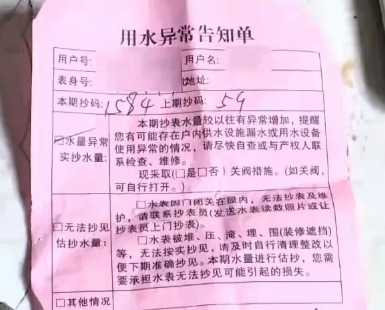 用水异常告知单
用户号: 用户名:
表身号: 地址:
本期抄码: 1584 上期抄码: 59
☑水量异常
实抄水量:
本期抄表水量较以往有异常增加,提醒
您有可能存在户内供水设施漏水或用水设备
使用异常的情况,请尽快自查或与产权人联
系检查、维修。
现采取(□是□否)关阀措施。(如关阀,
可自行打开。)
□无法抄见
估抄水量:
□水表因门闭关在院内,无法抄表及维
护,请联系抄表员(发送水表读数照片或让
抄表员上门抄表)。
□水表破堆、压、淹、埋、围(装修遮挡)
等,无法按实抄见,请及时自行清理整改以
便下期准确抄见。本期水量进行估抄,您需
要承担水表无法抄见可能引起的损失。
□其他情况